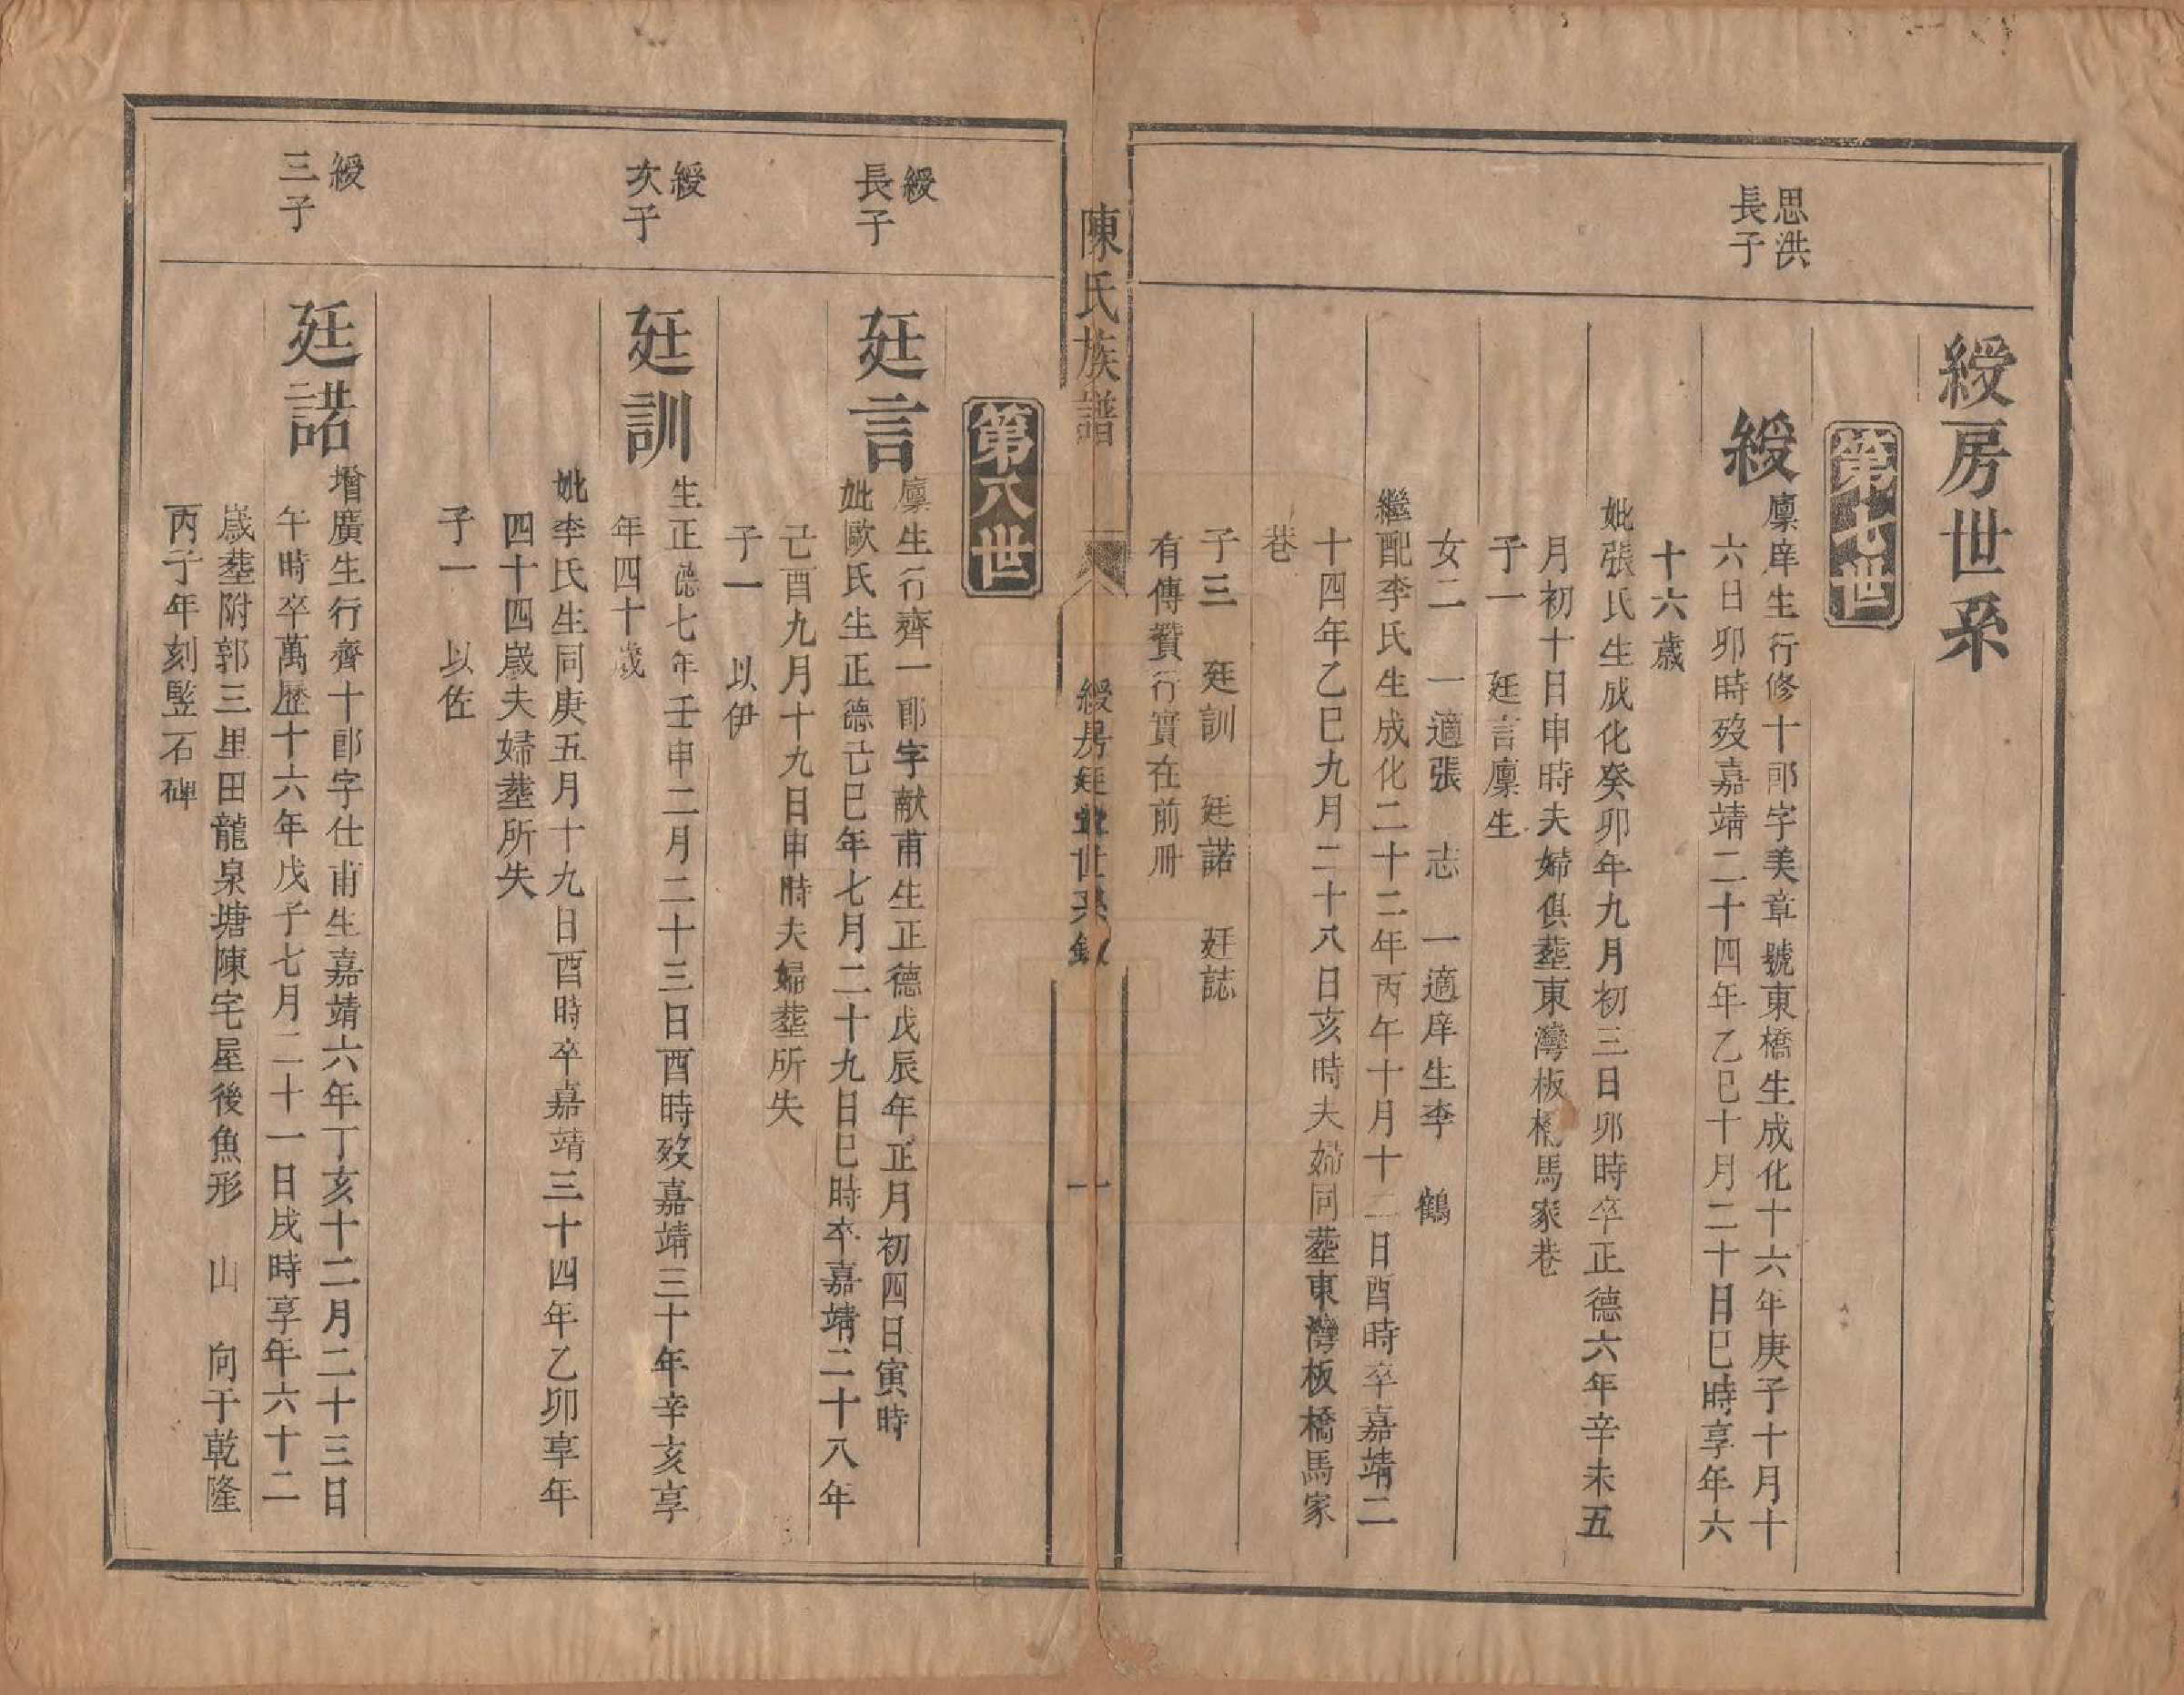 綬房世系
第七世
思洪
長子
綬
廩庠生行修十郎字美章號東橋生成化十六年庚子十月十
六日卯時歿嘉靖二十四年乙巳十月二十日巳時享年六
十六歲
妣張氏生成化癸卯年九月初三日卯時卒正德六年辛未五
月初十日申時夫婦俱塟東灣板橋馬家巷
子一　廷言廩生
女二　一適張　志　一適庠生李　鶴
繼配李氏生成化二十二年丙午十月十二日酉時卒嘉靖二
十四年乙巳九月二十八日亥時夫婦同塟東灣板橋馬家
巷
子三　廷訓　廷諾　廷誌
有傳贊行實在前冊
陳氏族譜
綬房廷 世系
一
第八世
綬
長子
廷言
廩生行齊一郎字献甫生正德戊辰年正月初四日寅時
妣歐氏生正德己巳年七月二十九日巳時卒嘉靖二十八年
己酉九月十九日申時夫婦塟所失
子一　以伊
綬
次子
廷訓
生正德七年壬申二月二十三日酉時歿嘉靖三十年辛亥享
年四十歲
妣李氏生同庚五月十九日酉時卒嘉靖三十四年乙卯享年
四十四歲夫婦塟所失
子一　以佐
綬
三子
廷諾
增廣生行齊十郎字仕甫生嘉靖六年丁亥十二月二十三日
午時卒萬歷十六年戊子七月二十一日戌時享年六十二
歲塟附郭三里田龍泉塘陳宅屋後魚形　山　向于乾隆
丙子年刻竪石碑